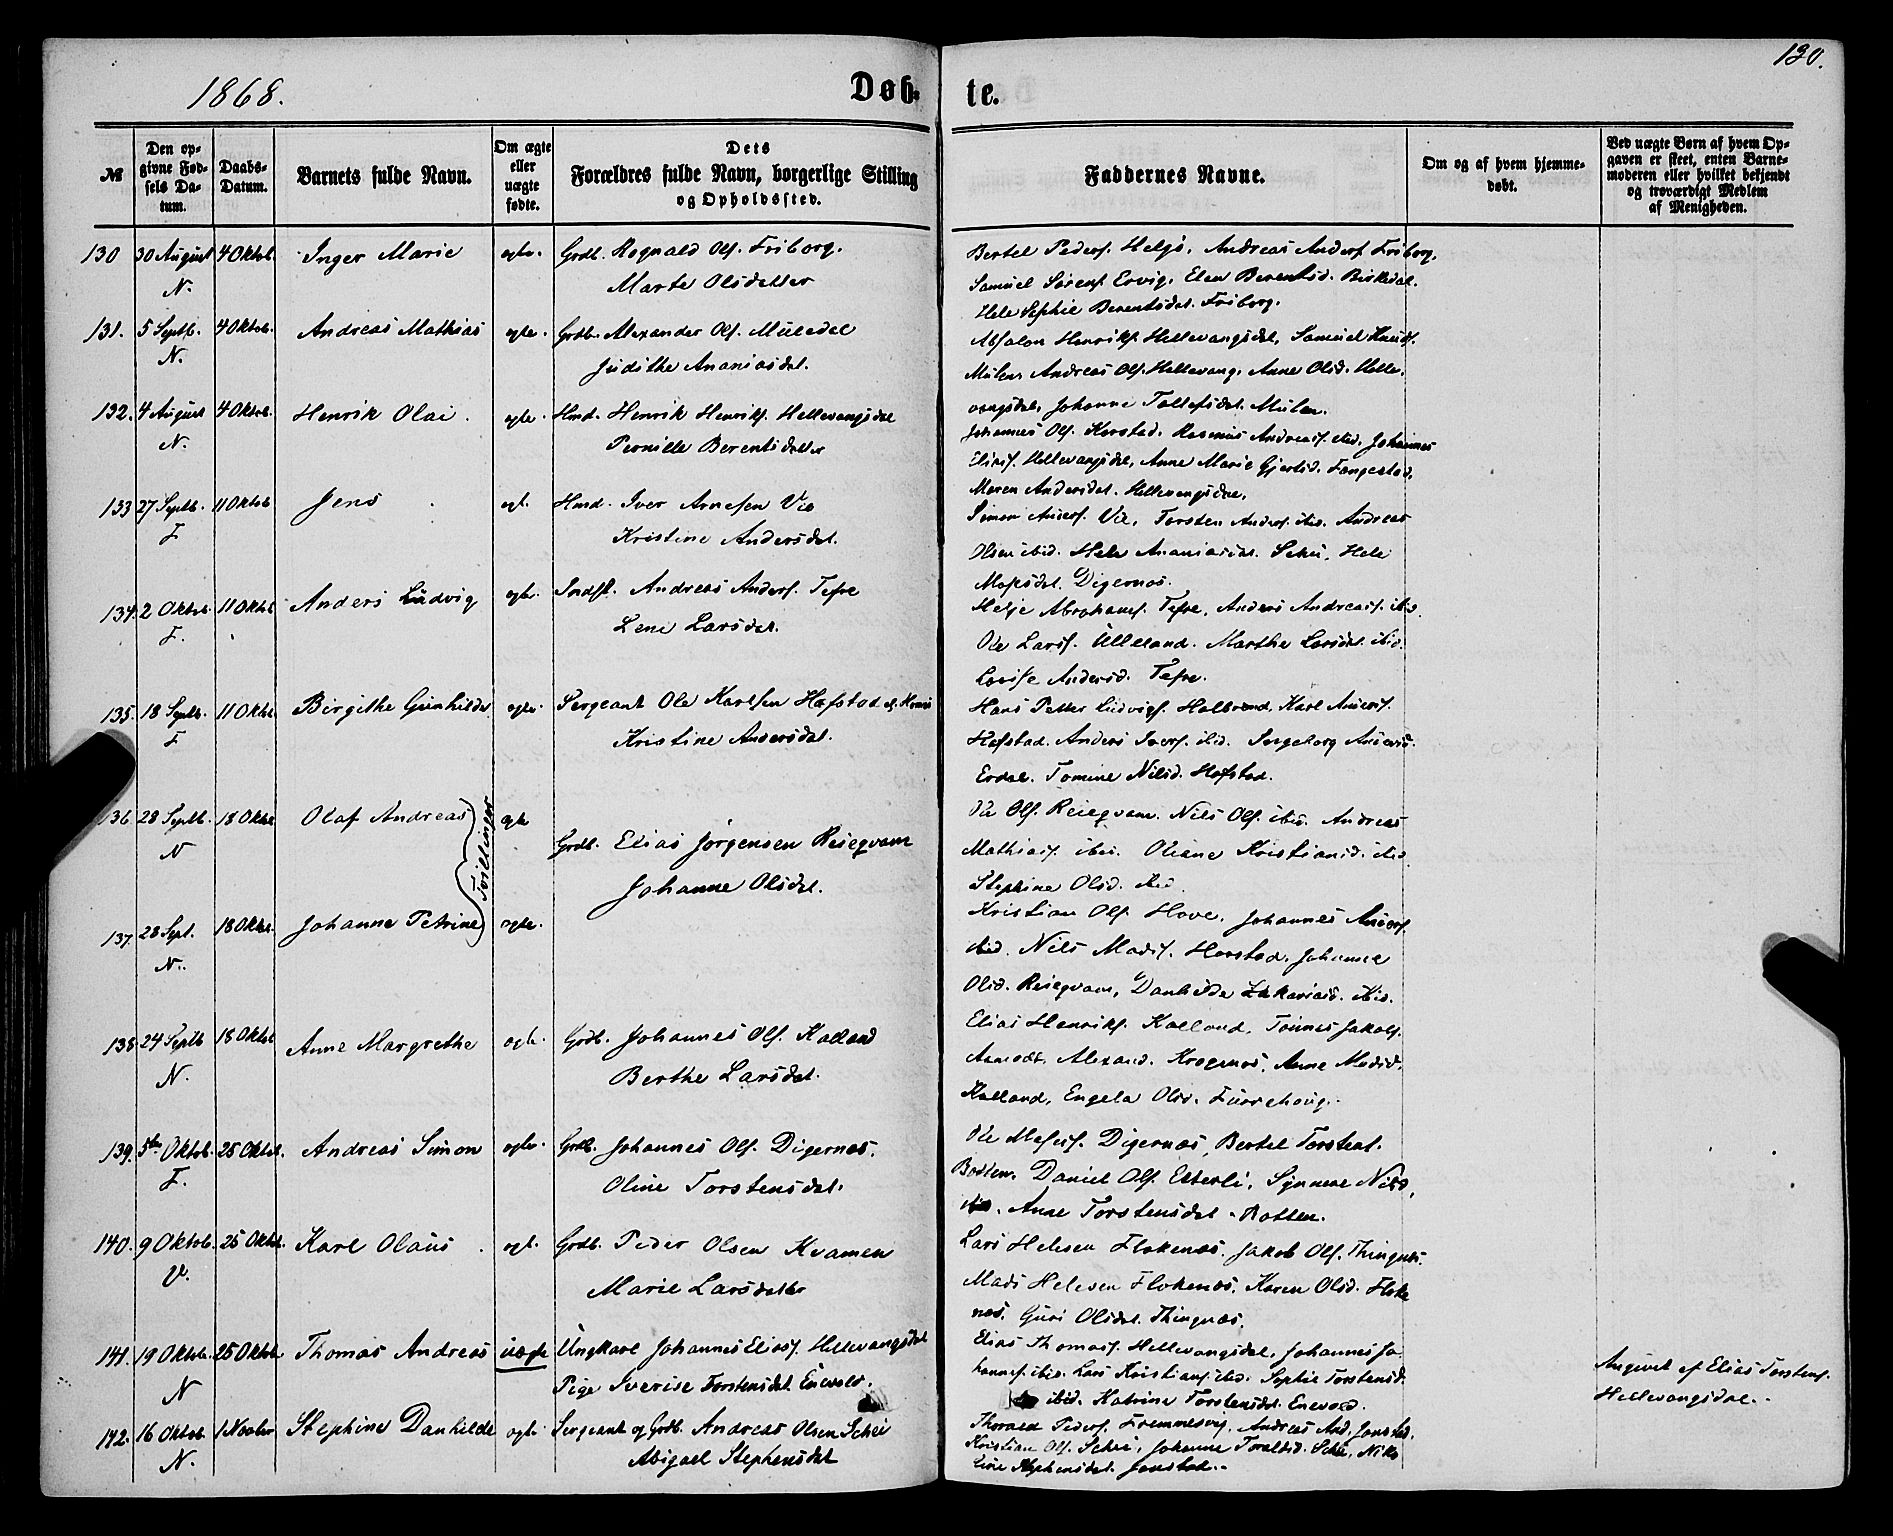 1868.
Døb-
te.
130.
№
Den op-
givne Fød-
sels Da-
tum.
Daabs-
Datum.
Barnets fulde Navn.
Om ægte
eller
uægte
fødte.
Dets
Forældres fulde Navn, borgerlige Stilling
og Opholdssted.
Faddernes Navne.
Om og af hvem hjemme-
døbt.
Ved uægte Børn af hvem Op-
gaven er skeet, enten Barne-
moderen eller hvilket bekjendt
og troværdigt Medlem
af Menigheden.
130 30 August 4 Oktob. Inger Marie ægte. Grdb. Rognald Ols. Friborg.
N. Marte Olsdatter
Bertel Peders. Anderas Anders. Friborg.
Samuel Sørens. Ervig. Elen Berentsd. Birkedal.
Sophie Berentsdat. Friborg.
131. 5 Septb. 4 Oktob. Andreas Mathias ægte. Grdb. Alexander Ols. Muledal
N. Judithe Ananiasdat.
Absalon Henriks. Hellevangsdal, Samuel Knuds.
Mulen Andreas Ols. Hellevang, Anne Olsd. Helle-
vangsdal, Johanne Tollefsdat. Mulen.
132. 4 August 4 Oktob. Henrik Olai. ægte. Hmd. Henrik Henriks. Hellevangsdal
N. Pernille Berentsdatter
Johannes Ols. Rasmus Andreass. ibid, Johannes
Eliass. Hellevangsdal, Anne Marie Gjertsd.
Maren Andersdat. Hellevangsdal.
133 27 Septb. 11 Oktob. Jens ægt. Hmd. Iver Arnesen Vie
F. Kristine Andersdat.
Simon Anders. Vie, Torsten Anders. ibid. Andreas
Olsen ibid. Hele Ananiasdat. Hele
Digernæs.
134. 2 Oktob. 11 Oktob. Anders Ludvig ægte. Indst. Andreas Anders. Tefre
F. Lene Larsdat.
Helje Abrahams. Tefre, Anders Andreass. ibid.
Ole Lars. Ulleland. Marthe Larsdat. ibid.
Lovise Andersd. Tefre.
135. 18 Septb. 11 Oktob. Birgithe Gunhilde ægte. Sergeant Ole Karlsen Hafstad
F Kristine Andersdat.
Hans Petter Ludvigs. Karl Anders.
Hafstad. Anders Ivers. ibid. Ingeborg
Erdal. Tomine Nilsd. Hafstad.
136. 28 Septb. 18 Oktob. Olaf Andreas ægte
N Tvillinger
Grdb. Elias Jørgensen Reieqvam
Johanne Olsdat.
Ole Ols. Reieqvam. Nils Ols. ibid. Andreas
Mathias. ibid. Oliane Kristiansd. ibid
Stephine Olsd. ibid.
137. 28 Sept. 18 Oktob. Johanne Petrine ægte.
N.
Kristian Ols. Hove. Johannes Anders.
ibid. Nils Mads. Horstad. Johanne
Olsd. Reieqvam, Danhilde Zakariasd. ibid.
138 24 Septb 18 Oktob Anne Margrethe ægte. Grdb. Johannes Ols. Kalland
N. Berthe Larsdat.
Elias Henriks. Kalland, Tønnes Jakobs.
Alexand. Krogenæs, Anne Madsd.
Kalland, Engela Olsd. Furrehaug.
139. 5te Oktob. 25 Oktob. Andreas Simon ægte. Grdb. Johannes Ols. Digernæs.
F. Oline Torstensdat.
Ole Digernæs, Bertel
Botten. Daniel Ols. Esterli. Synneve Nilsd.
ibid. Anne Torstensdat. Botten.
140. 9 Oktob. 25 Oktob. Karl Olaus. ægt. Grdb. Peder Olsen Kvamen
V. Marie Larsdatter
Lars Helesen Flokenæs. Jakob Ols. Thingnæs.
Mads Helesen Flokenæs, Karen Olsd. Floke
næs. Guri Olsdat. Thingnæs.
141. 19 Oktob. 25 Oktob. Thomas Andreas uægte Ungkarl Johannes Eliass. Hellevangsdal
N Pige Iverise Torstensdat. Enevold.
Elias Thomass. Hellevangsdal, Johannes Jo-
hanness. ibid. Lars Kristians. ibid. Sophie Torstensd.
ibid. Katrine Torstensdat. Enevold.
Angivet af Elias Torstens.
Hellevangsdal.
142. 16 Oktob. 1 Novbr Stephine Danhilde ægte. Sergeant og Grdb. Andreas Olsen Schei
N. Abigael Stephensdat
Peders. Fremmesvig, Andreas And. Jonstad.
Kristian Ols. Schei, Johanne Schei, Niko
line Stephensdat. Jonstad.